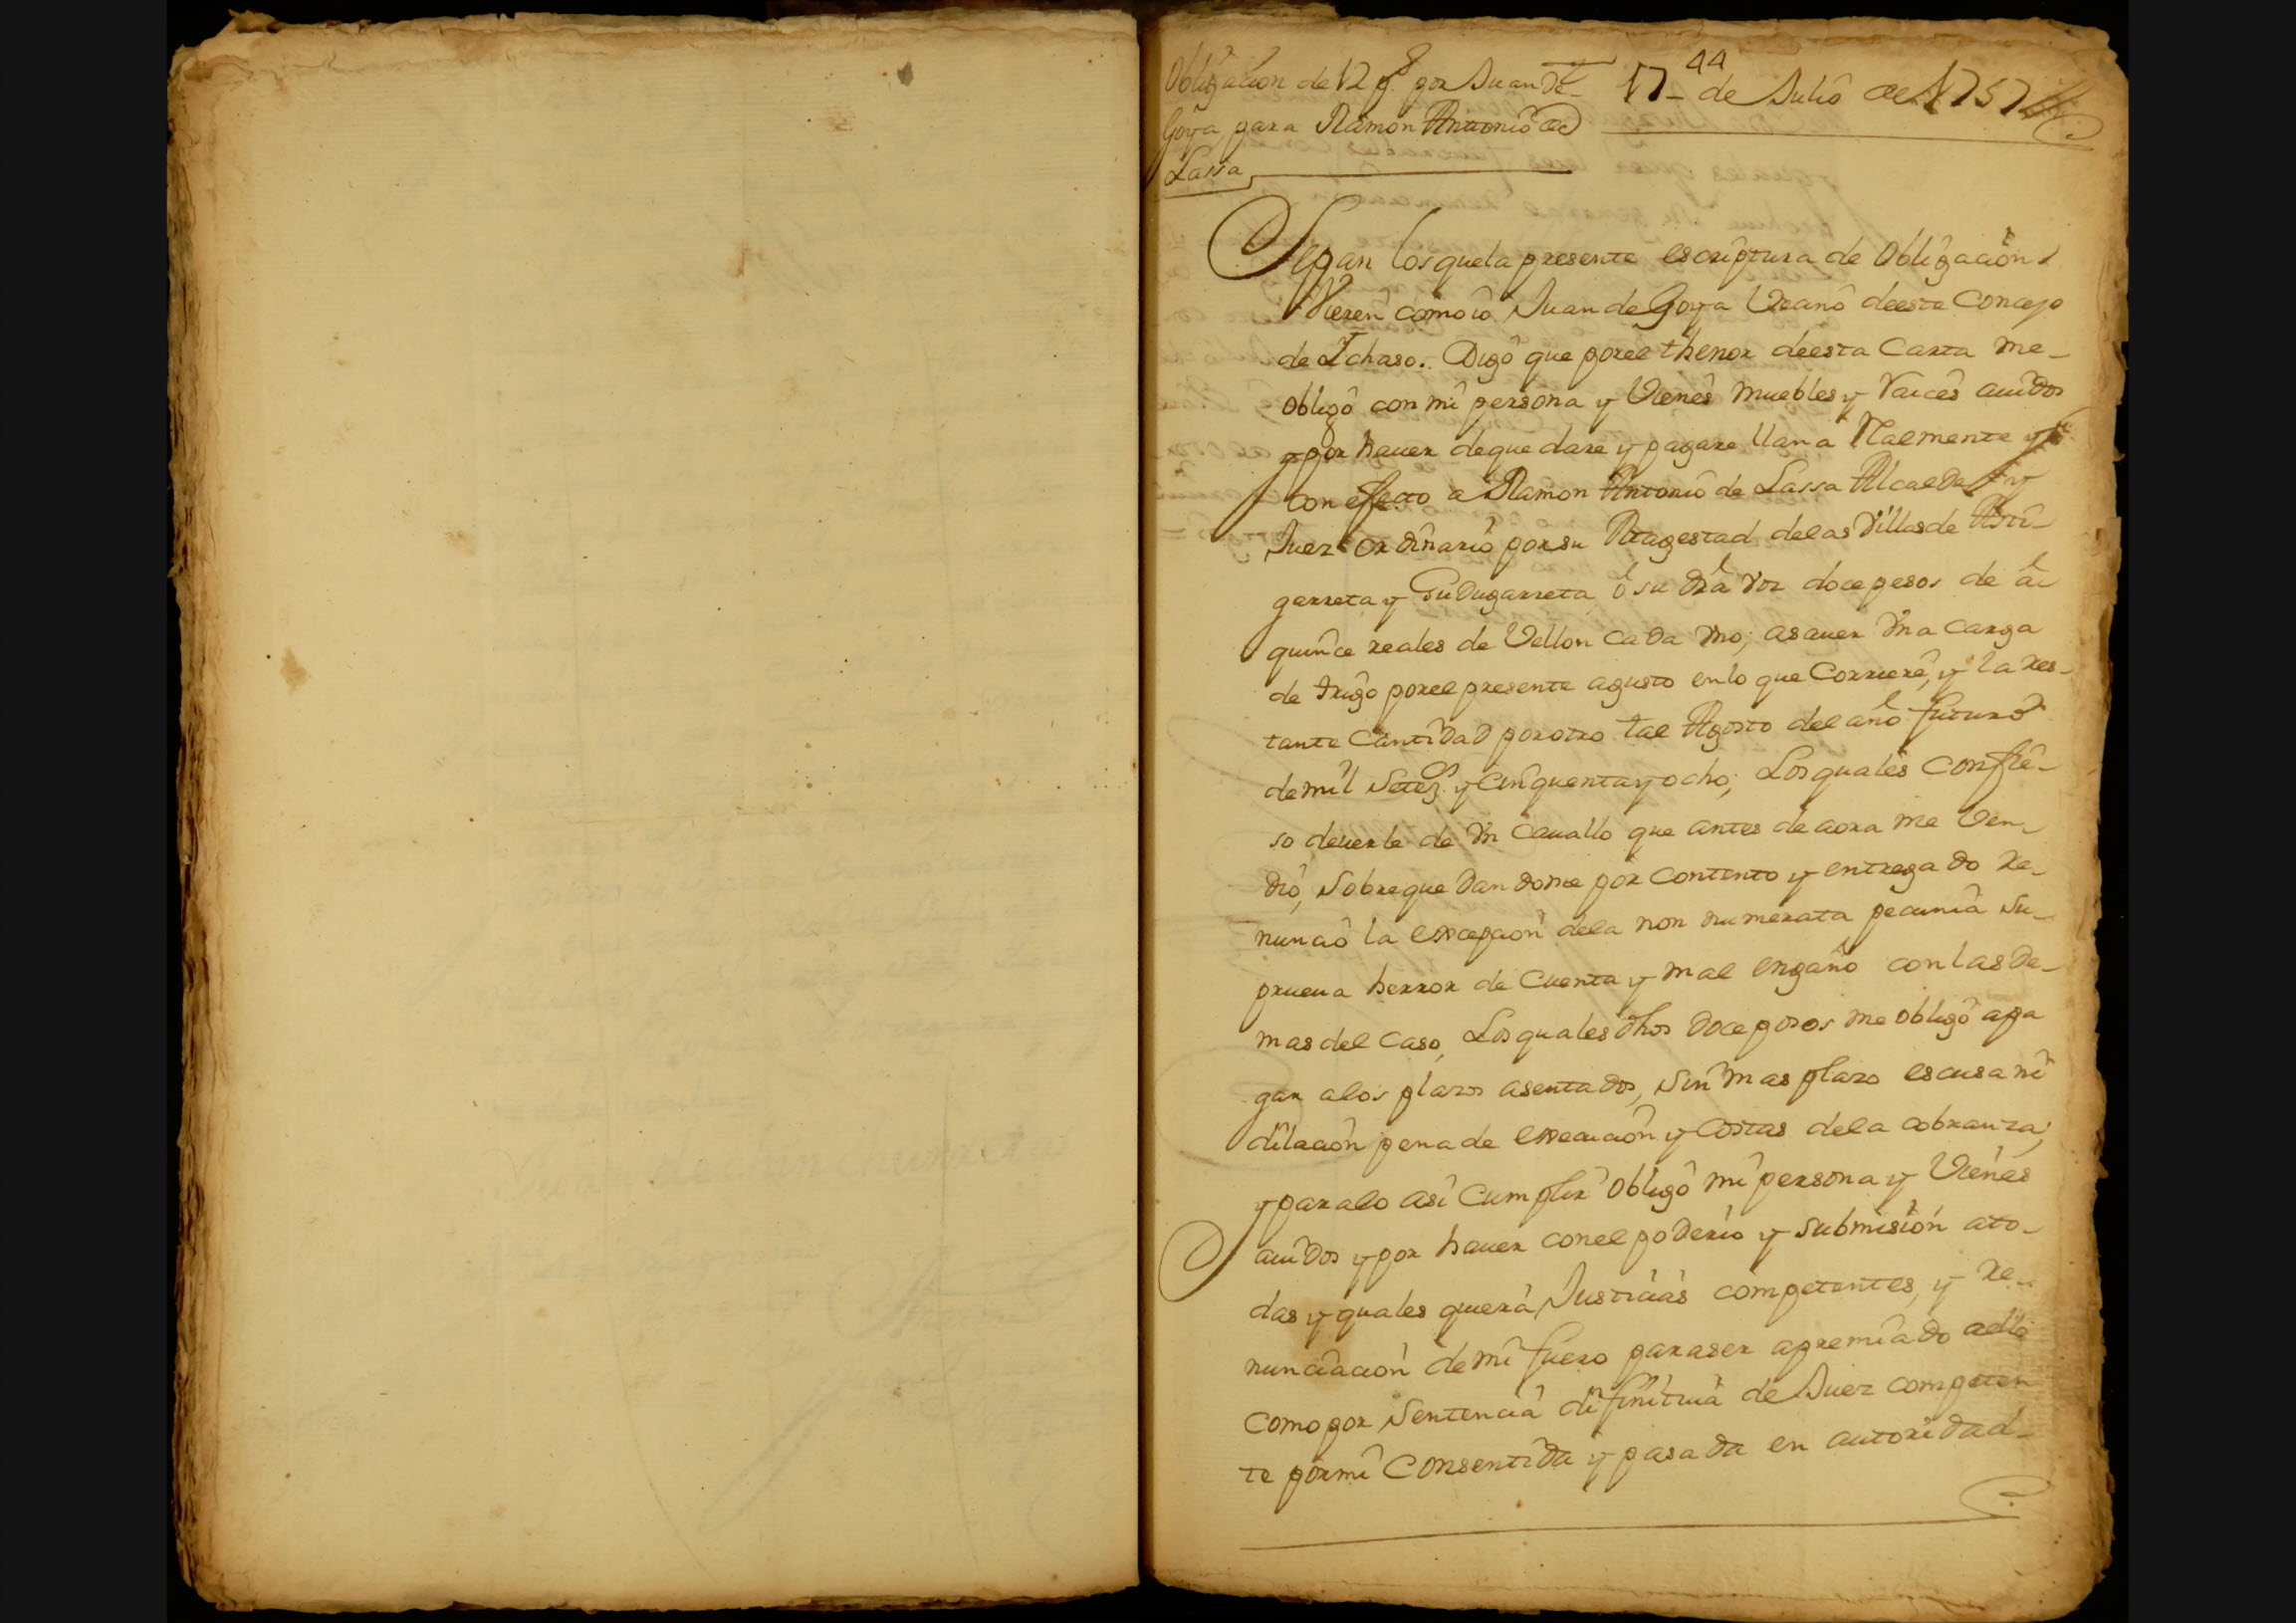 44
Obligacion de 12 ps. por Juan de
Goya para Ramon Antonio de
Lassa
17 de Julio de 1757
Sepan los que la presente escriptura de Obligacion
Vieren como io Juan de Goya Vecino de este Concejo
de Ichaso. Digo que por el thenor de esta Carta me
obligo con mi persona y Vienes muebles y raices auidos
y por hauer de que dare y pagare llana Realmente y
con effecto a Ramon Antonio de Lassa Alcalde y
Juez ordinario por su Magestad de las Villas de Asti-
garreta y Gudugarreta, o su dra voz doce pesos de a
quince reales de Vellon cada vno; asauer vna carga
de trigo por el presente agusto en lo que Corriere, y la res-
tante Cantidad por otro tal Agosto del año futuro
de mil Setezs. y Cinquenta y ocho; Los quales Confie-
so deuerle de vn Cauallo que antes de aora me Ven-
dio, Sobre que dandome por Contento y entregado re-
nuncio la excepcion de la non numerata pecunia su
prueua herror de Cuenta y mal engaño con las de-
mas del Caso, Los quales dhos doce pesos me obligo a pa
gar a los plazos asentados, Sin mas plazo escusa ni
dilacion pena de execucion y Costas de la cobranza;
y para lo asi Cumplir obligo mi persona y Vienes
auidos y por hauer con el poderio y submision a to-
das y quales quiera Justicias competentes, y re-
nunciacion de mi fuero para ser apremiado a ello
Como por Sentencia difinitiua de Juez competen
te por mi Consentida y pasada en autoridad